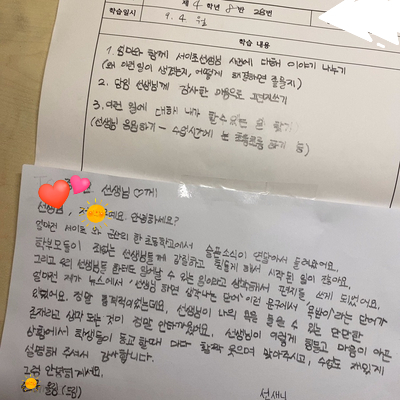 제 4 학년 8 반 28번
학습일시 9. 4. 월
학습 내용
1. 엄마와 함께 서이초선생님 사건에 대해 이야기 나누기
(왜 이런일이 생겼는지, 어떻게 해결하면 좋을지)
2. 담임 선생님께 감사한 마음으로 편지쓰기
3. 이런 일에 대해서 내가 할 수 있는
(선생님 응원하기 - 수업시간에
선생님 ♡께!
선생님, 안녕하세요?
얼마전 서이초 와 군산의 한 초등학교에서 슬픈소식이 연달아서 들려왔어요.
학부모들이 죄없는 선생님들께 갑질하고 힘들게 해서 시작된 일이 많아요.
그리고 우리 선생님들 한테도 일어날 수 있는 일이라고 생각해서 편지를 쓰게 되었어요.
얼마전 제가 뉴스에서 '선생님 하면 생각나는 단어' 이런 문구에서 '욕받이'라는 단어가
있었어요. 정말 충격적이었는데요, 선생님이 나의 욕을 들을 수 있는 단단한
존재라고 생각 되는 것이 정말 안타까웠어요. 선생님이 이렇게 힘들고 마음이 아픈
상황에서 학생들이 등교 할때 마다 활짝 웃으며 맞아주시고, 수업도 재밌게
설명해 주셔서 감사합니다.
그럼 안녕히계세요.
올림 (드림)
선새니